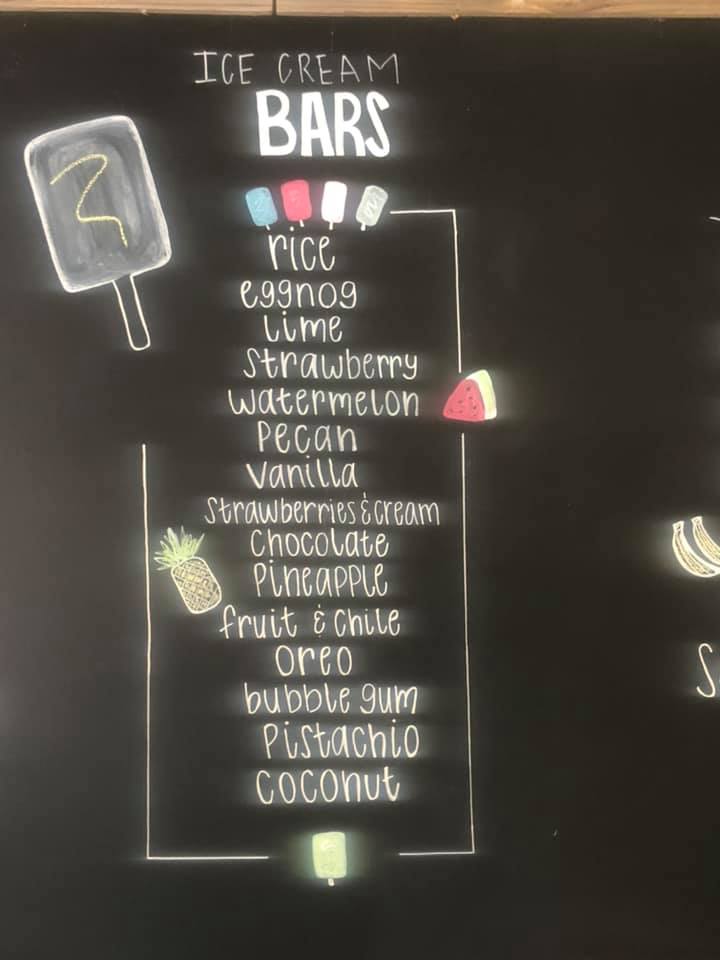 ICE CREAM
BARS
rice
eggnog
lime
strawberry
watermelon
pecan
vanilla
strawberries & cream
chocolate
pineapple
fruit & chile
oreo
bubble gum
pistachio
coconut